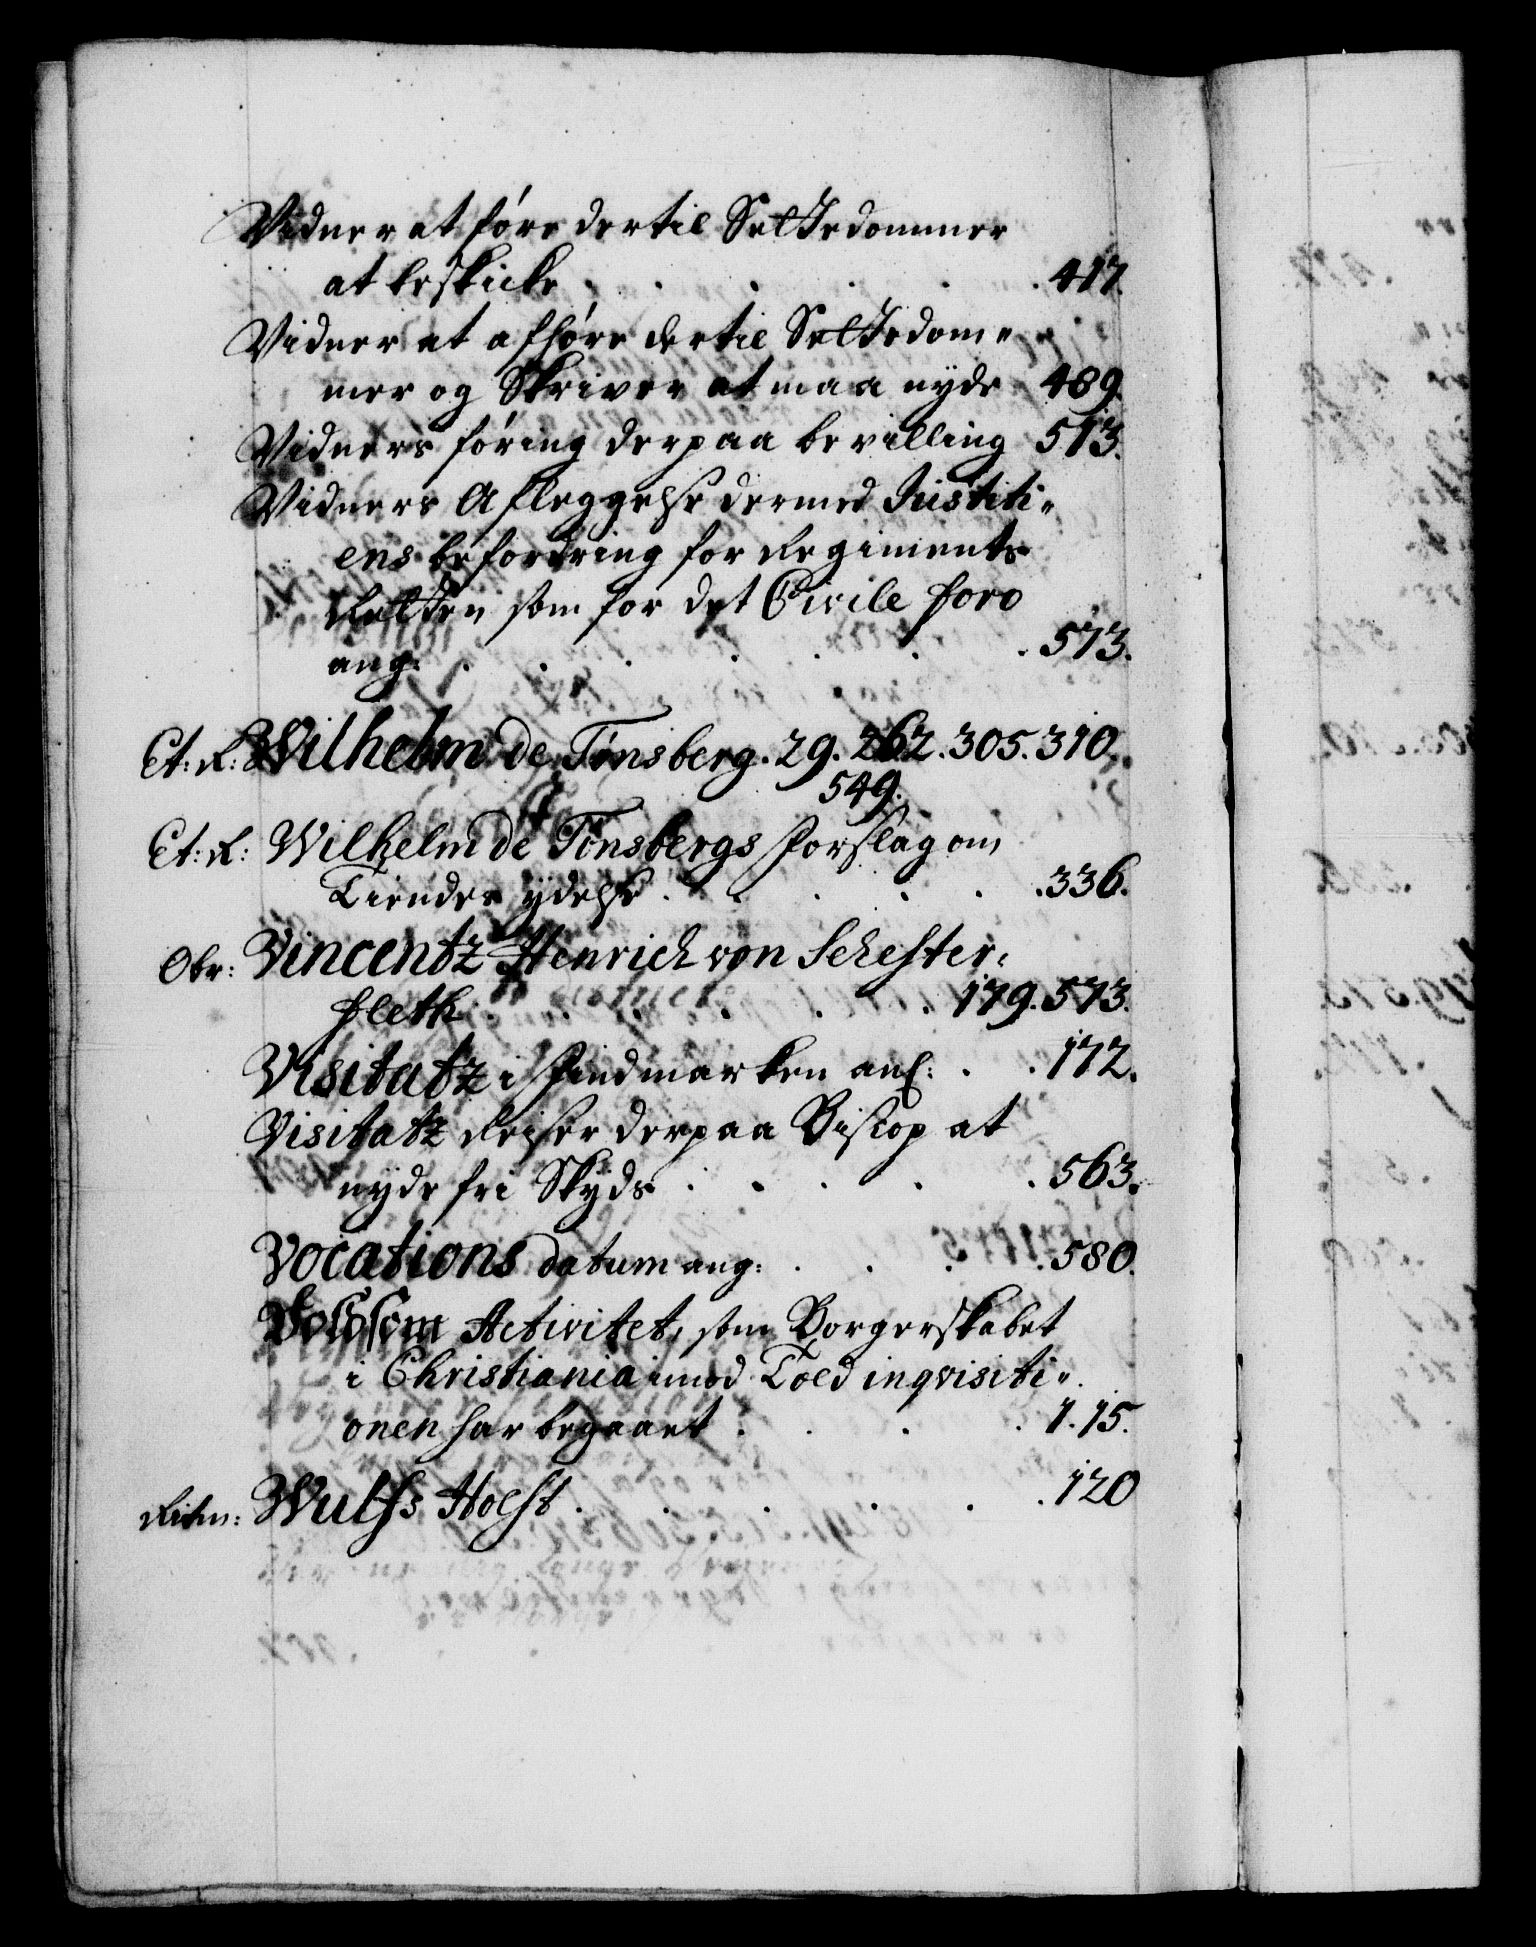 Vidner at føre dertil Settedommer
at beskicke . . . . . . 417.
Vidner at afhøre dertil Settedom„
mer og Skriver at maa nyde 489.
Vidners føring derpaa bevilling 513.
Vidners Afleggelse dermed Justiti„
ens befordring for Regiments
Retten som for det Civile foro
ang: . . . . . . . 573.
Et: R: Wilhelm de Tønsberg. 29. 262. 305. 310.
549.
Et: R: Wilhelm de Tønsbergs forslag om
Tiendes ydelse . . . . . 336.
Obr: Vincentz Henrich von Schester:
fleth . . . . . . 179. 573.
Visitatz i Findmarken anl: . . 172.
Visitatz Reiser derpaa Biscop at
nyde fri Skyds . . . . . 563.
Vocations datum ang: . . . . 580.
Voldsom Activitet, som Borgerskabet
i Christiania imod Told inqvisiti„
onen har begaaet . . . . 1. 15.
Ritm: Wulfs Holst . . . . . . 120